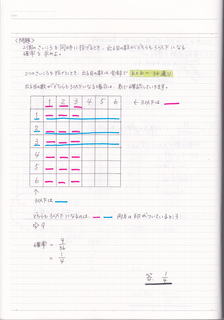 <問題>
2個のさいころを同時に投げるとき、出る目の数がどちらも3以下になる
確率を求めよ。
2つのさいころを投げるとき、出る目の数は全部で 6×6= 36通り
出る目の数がどちらも3以下になる場合は、表にて確認していきます。
1 2 3 4 5 6 ← 3以下は
1
2
3
4
5
6
↑
3以下は
どちらも3以下になるのは 両方
確率 = 9/36
= 1/4
答. 1/4